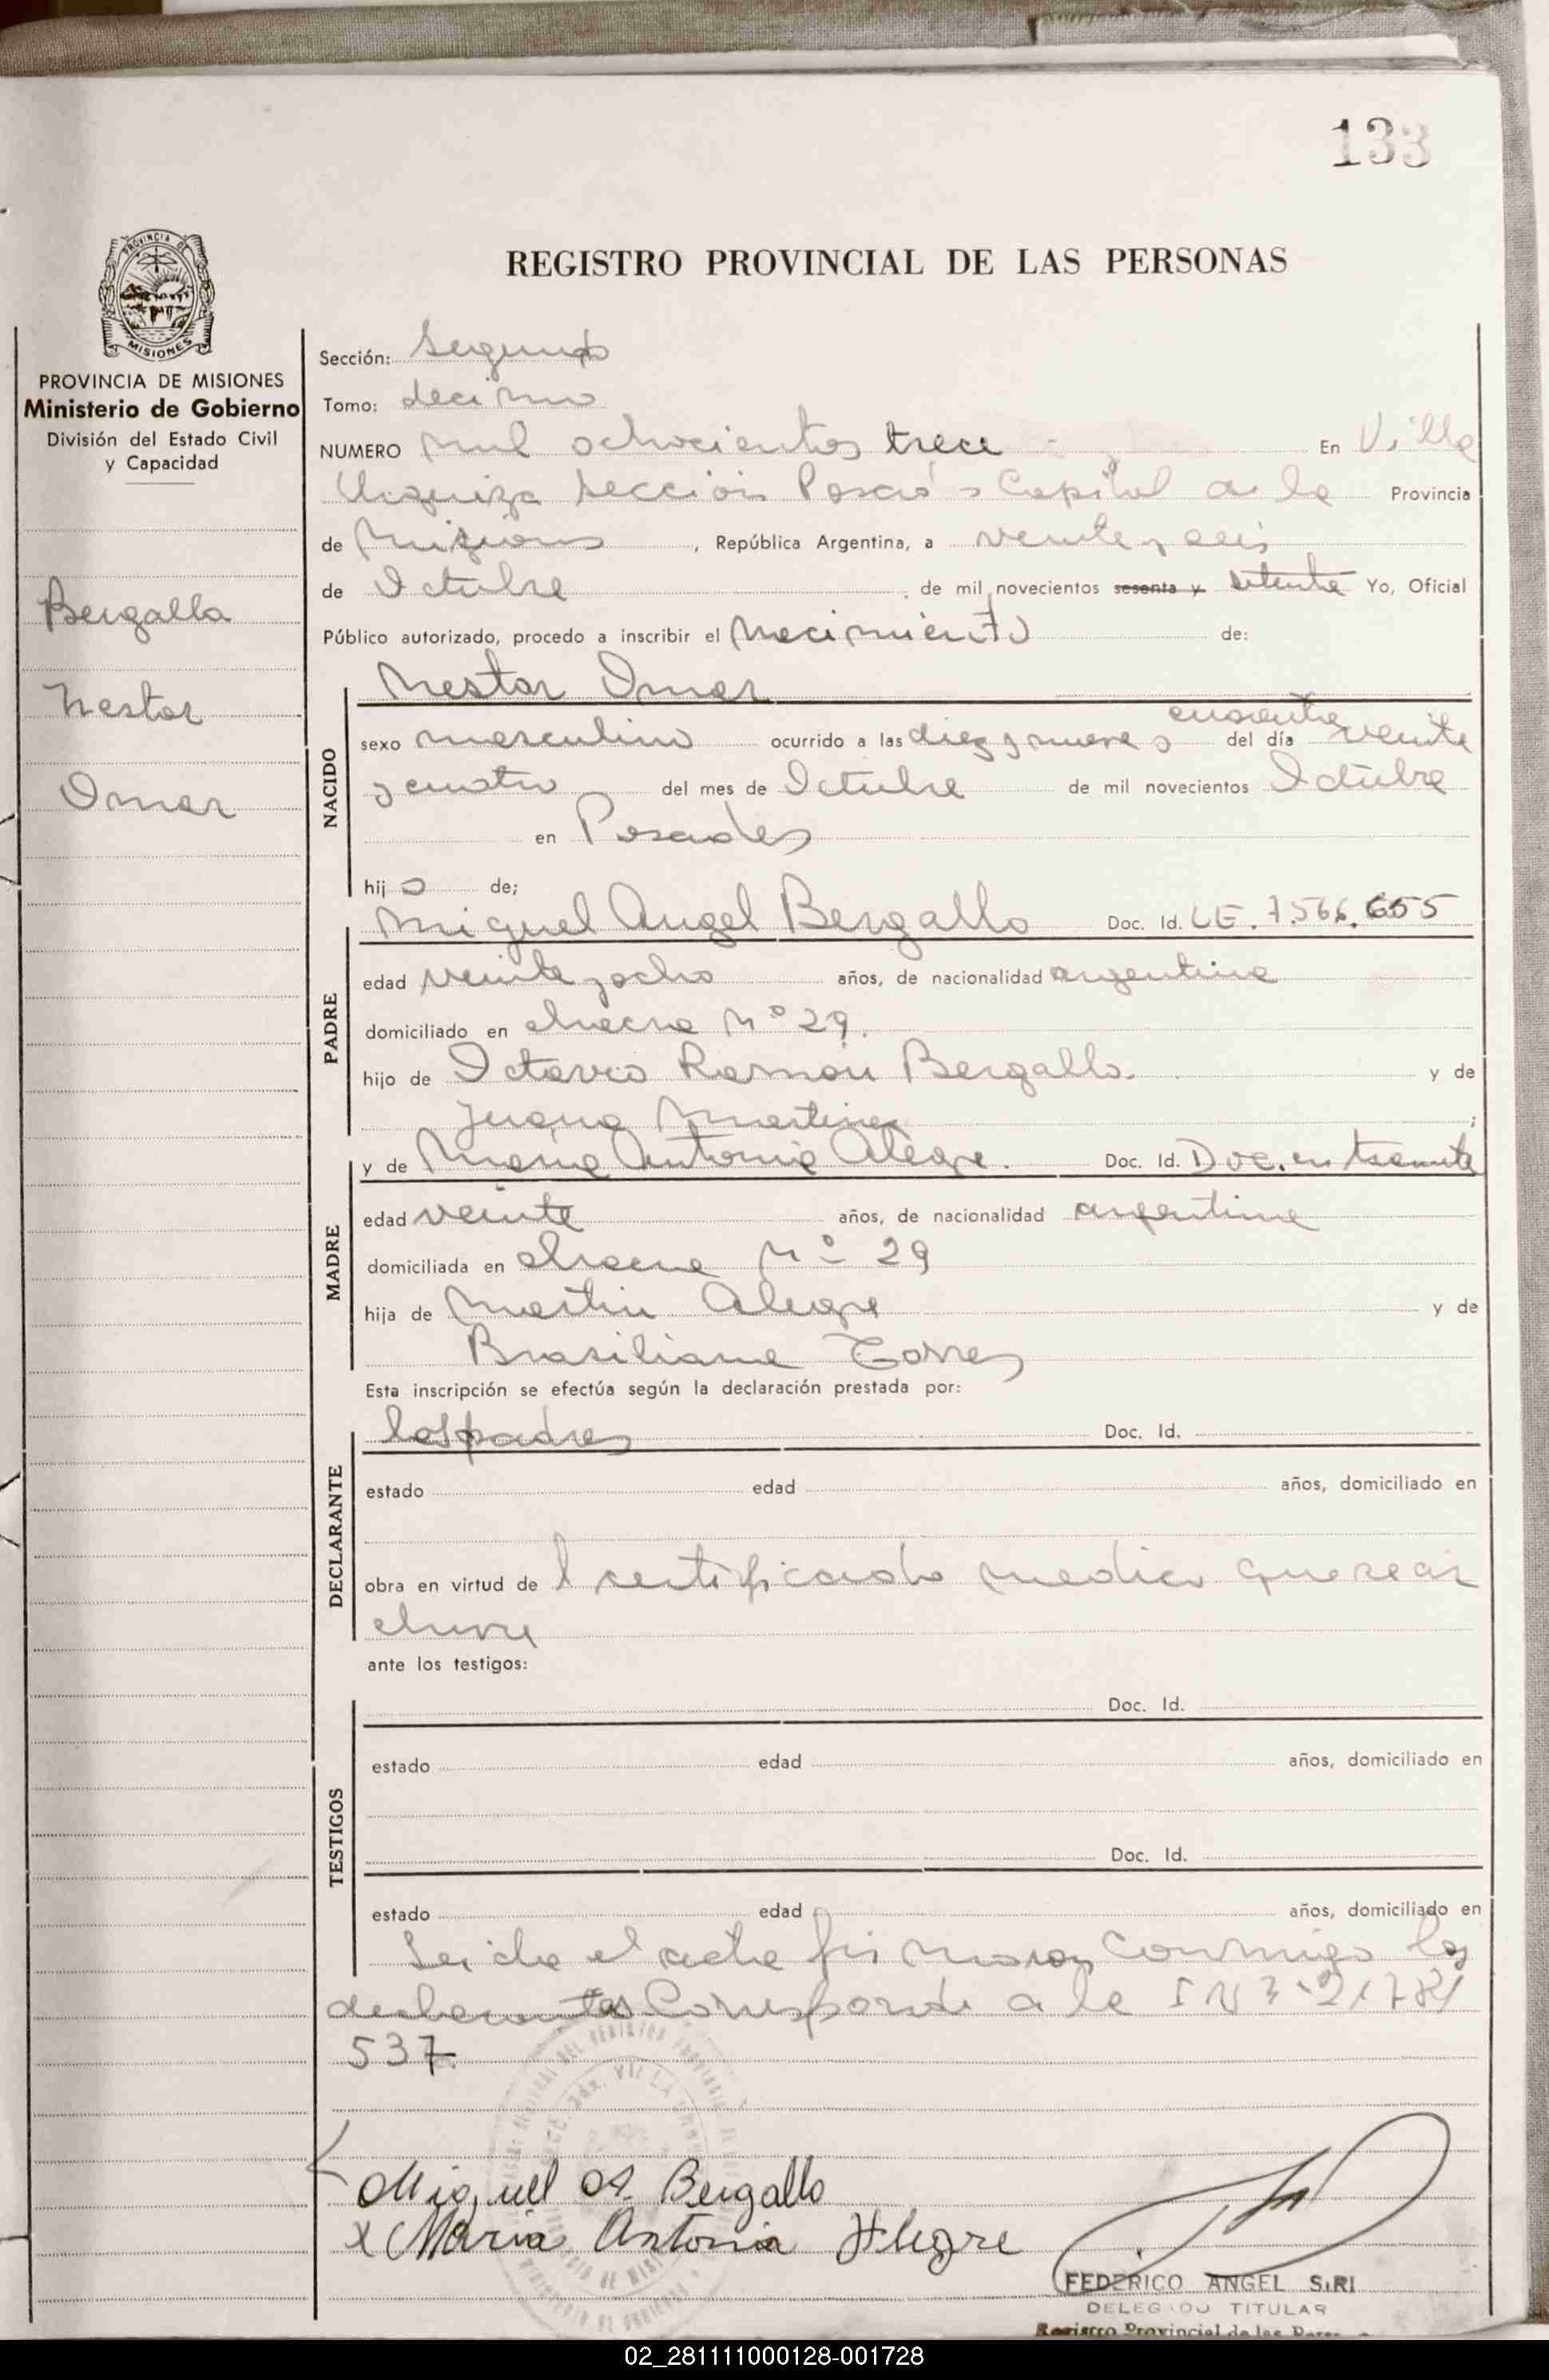 133
REGISTRO PROVINCIAL DE LAS PERSONAS
PROVINCIA DE
MISIONES
PROVINCIA DE MISIONES
Ministerio de Gobierno
División del Estado Civil
y Capacidad
Bergallo
Nestor
Omar
Sección: Segunda
Tomo: decimo
NUMERO mil ochocientos trece En Villa
Urquiza Sección Capital de la Provincia
de Misiones, República Argentina, a veinte y seis
de Octubre de mil novecientos sesenta y setenta Yo, Oficial
Público autorizado, procedo a inscribir el Nacimiento de:
Nestor Omar
cuarenta
NACIDO
sexo masculino ocurrido a las diez y nueve y del día veinte
y cuatro del mes de Octubre de mil novecientos Octubre
en Posadas
hijo de;
Miguel Angel Bergallo Doc. Id. LE. 7.566.655
PADRE
edad veinte y ocho años, de nacionalidad argentina
domiciliado en chacra Nº 29.
hijo de Octavio Ramón Bergallo. y de
Juana Martinez ;
y de Maria Antonia Alegre. Doc. Id. Doc. en tramite
MADRE
edad veinte años, de nacionalidad argentina
domiciliada en chacra Nº 29
hija de Martin Alegre y de
Brasiliana Torres
Esta inscripción se efectúa según la declaración prestada por:
los padres Doc. Id.
DECLARANTE
estado edad años, domiciliado en
obra en virtud de l certificado medico que se ar
chiva
ante los testigos:
Doc. Id.
TESTIGOS
estado edad años, domiciliado en
Doc. Id.
estado edad años, domiciliado en
Leida el acta firmaron conmigo los
declarantes Corresponde a la
537
Miguel A. Bergallo
x Maria Antonia Alegre
FEDERICO ANGEL SIRI
DELEGADO TITULAR
Registro Provincial de las Pers
02_281111000128-001728